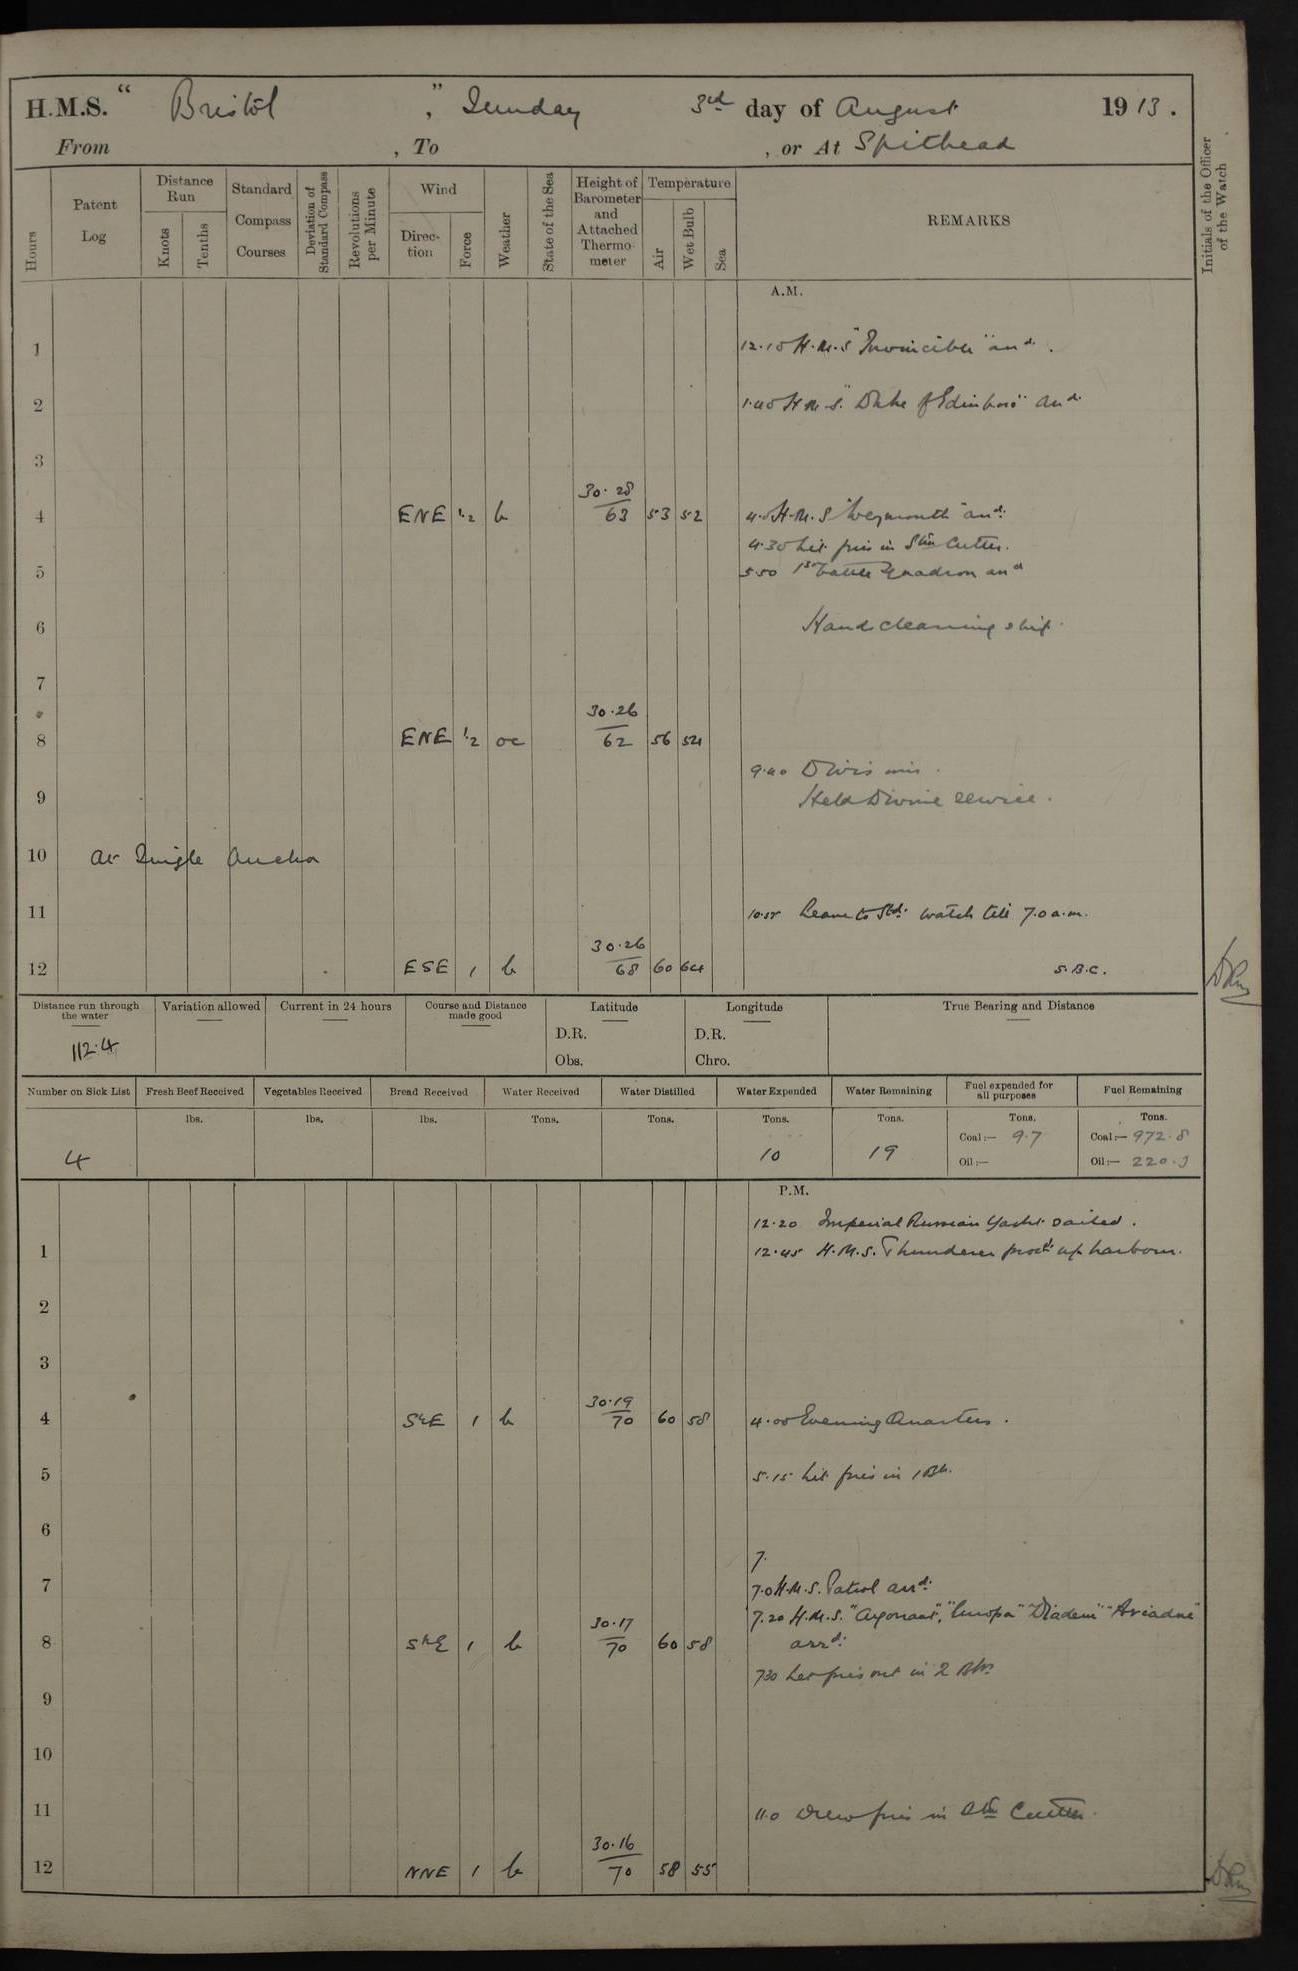 H.M.S. " Bristol ", Sunday 3rd day of August 1913.
From , To , or At Spithead
Hours
Patent Log
Distance Run
Knots
Tenths
Standard Compass Courses
Deviation of Standard Compass
Revolutions per Minute
Wind
Direction
Force
Weather
State of the Sea
Height of Barometer and Attached Thermometer
Temperature
Air
Wet Bulb
Sea
REMARKS
Initials of the Officer of the Watch
A.M.
1 12.15 H.M.S "Invincible" and.
2 1.40 H.M.S. "Duke of Edinboro" and.
3
30.28
4 ENE 1.2 b 63 53 52 4.0 H.M.S "Weymouth" and.
4.30 Lit fires in Stm Cutter.
5 5.50 1st Battle Squadron and
6 Hands cleaning ship.
7
30.26
8 ENE 1.2 oc 62 56 54
9.40 Divisions.
9 Held Divine Service.
10 At Single Anchor
11 10.55 Leave to Std. watch till 7.0 a.m.
30.26
12 ESE 1 b 68 60 64 S.B.C.
Distance run through the water
Variation allowed
Current in 24 hours
Course and Distance made good
Latitude
Longitude
True Bearing and Distance
D.R. D.R.
112.4
Obs. Chro.
Number on Sick List
Fresh Beef Received
Vegetables Received
Bread Received
Water Received
Water Distilled
Water Expended
Water Remaining
Fuel expended for all purposes
Fuel Remaining
lbs. lbs. lbs. Tons. Tons. Tons. Tons. Tons. Tons.
Coal:— 9.7 Coal:— 972.8
4 10 19
Oil:— Oil:— 220.9
P.M.
12.20 Imperial Russian Yacht sailed.
1 12.45 H.M.S. Thunderer procd. up harbour.
2
3
30.19
4 SxE 1 b 70 60 58 4.00 Evening Quarters.
5 5.15 Lit fires in 1 Blr.
6
7.
7 7.0 H.M.S. Patrol arrd.
7.20 H.M.S. "Argonaut", "Europa" "Diadem" "Ariadne"
30.17
8 SxE 1 b 70 60 58 arrd.
7.30 Let fires out in 2 Blrs
9
10
11 11.0 Drew fires in Stm Cutter.
30.16
12 NNE 1 b 70 58 55